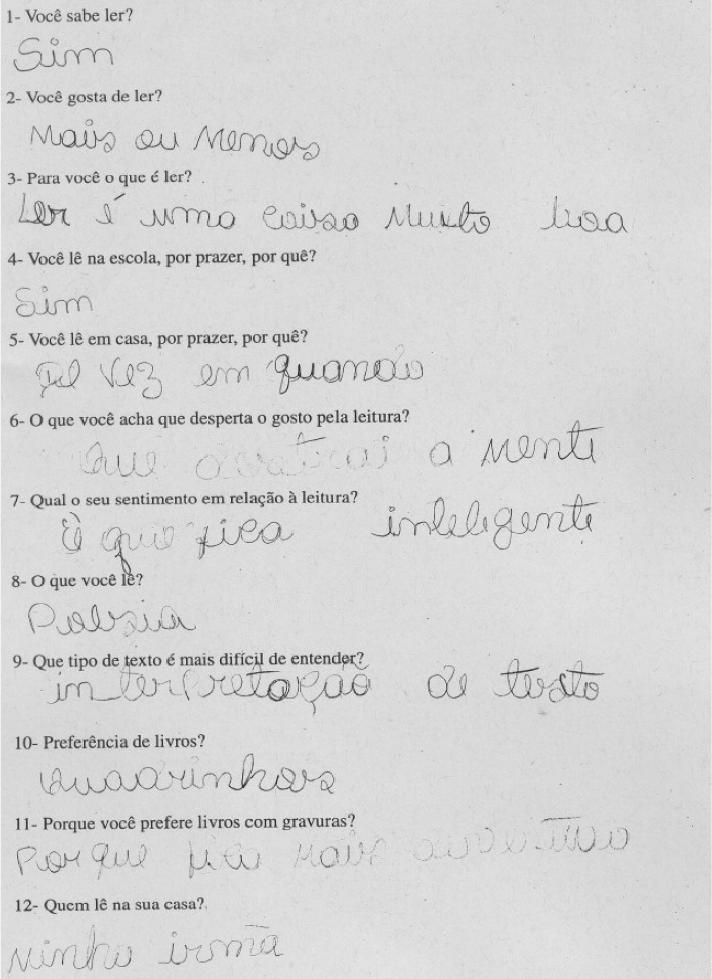 1- Você sabe ler?
Sim
2- Você gosta de ler?
Mais ou Menos
3- Para você o que é ler?
Ler é uma coisa Muito boa
4- Você lê na escola, por prazer, por quê?
Sim
5- Você lê em casa, por prazer, por quê?
vez em quando
6- O que você acha que desperta o gosto pela leitura?
que a mente
7- Qual o seu sentimento em relação à leitura?
é que fica inteligente
8- O que você lê?
Poesia
9- Que tipo de texto é mais difícil de entender?
interpretação de texto
10- Preferência de livros?
quadrinhos
11- Porque você prefere livros com gravuras?
Por que fica mais
12- Quem lê na sua casa?
Minha irmã